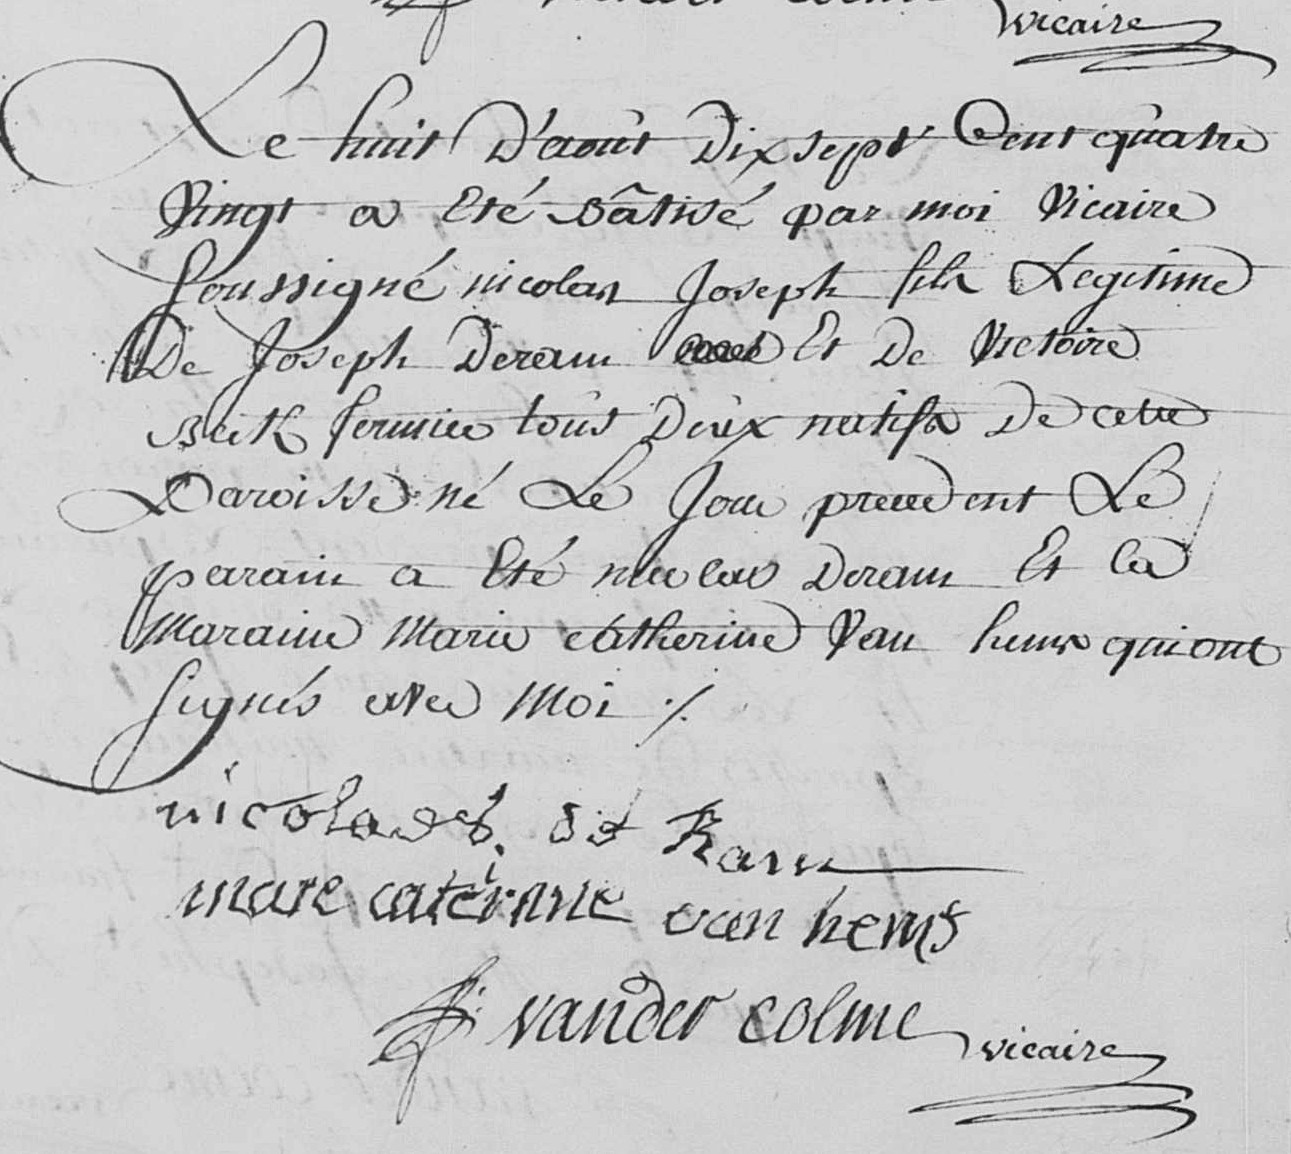 vicaire
Le huit D'août Dix sept Cent quatre
Vingt a Eté Bâtisé par moi Vicaire
Soussigné nicolas Joseph fils Legitime
De Joseph Deram Et De Victoire
fermier tous Deux natifs De cette
Paroisse né Le Jour precedent Le
parain a Eté nicolas Deram Et la
Maraine Marie catherine Van hems qui ont
Signés avec Moi ./.
nicolaes de Ram
mare caterine van hems
vander colme vicaire